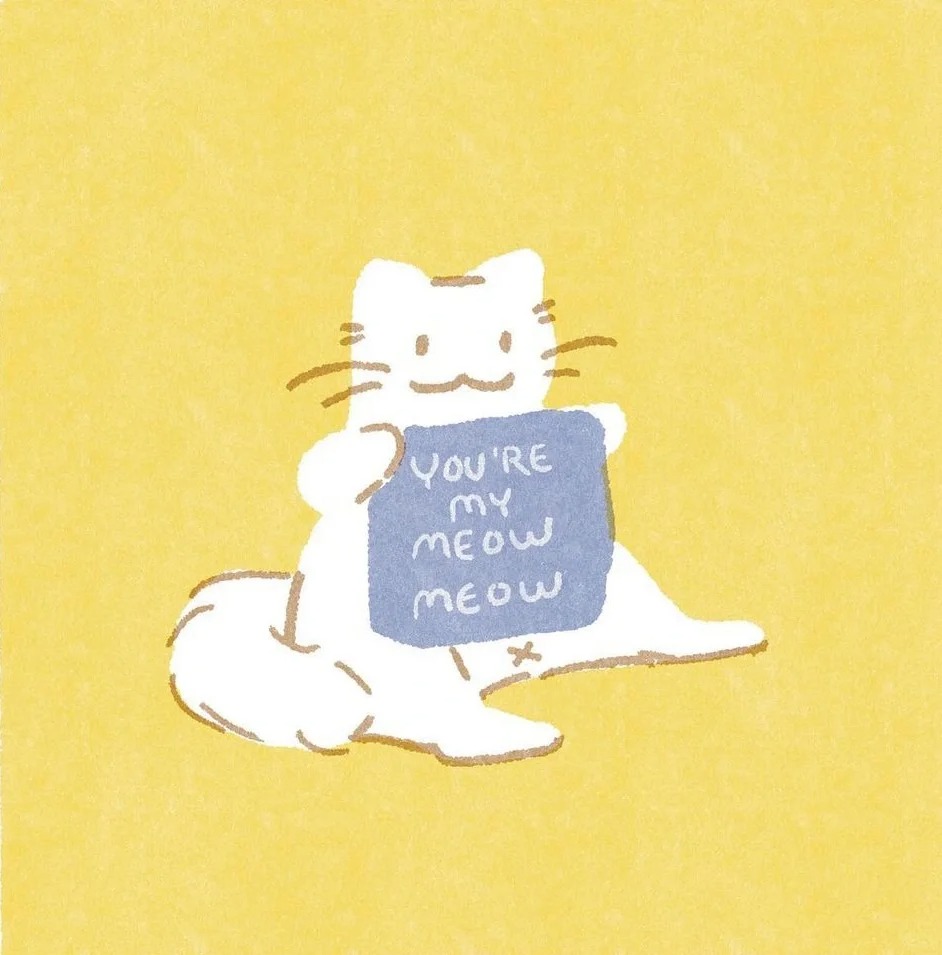 YOU'RE
MY
MEOW
MEOW